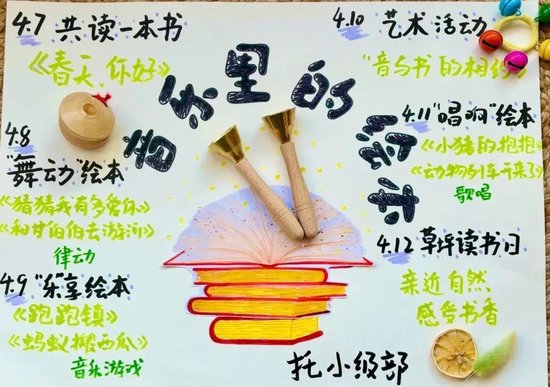 音乐里的绘本
4.7 共读一本书
《春天,你好》
4.8
"舞动"绘本
《猜猜我有多爱你》
《和甘伯伯去游河》
律动
4.9 "乐"享绘本
《跑跑镇》
《蚂蚁搬西瓜》
音乐游戏
4.10 艺术活动
"音与书"的相约
4.11 "唱响"绘本
《小猪的抱抱》
《动物列车开来了》
歌唱
4.12 草坪读书日
亲近自然
感受书香
托小级部